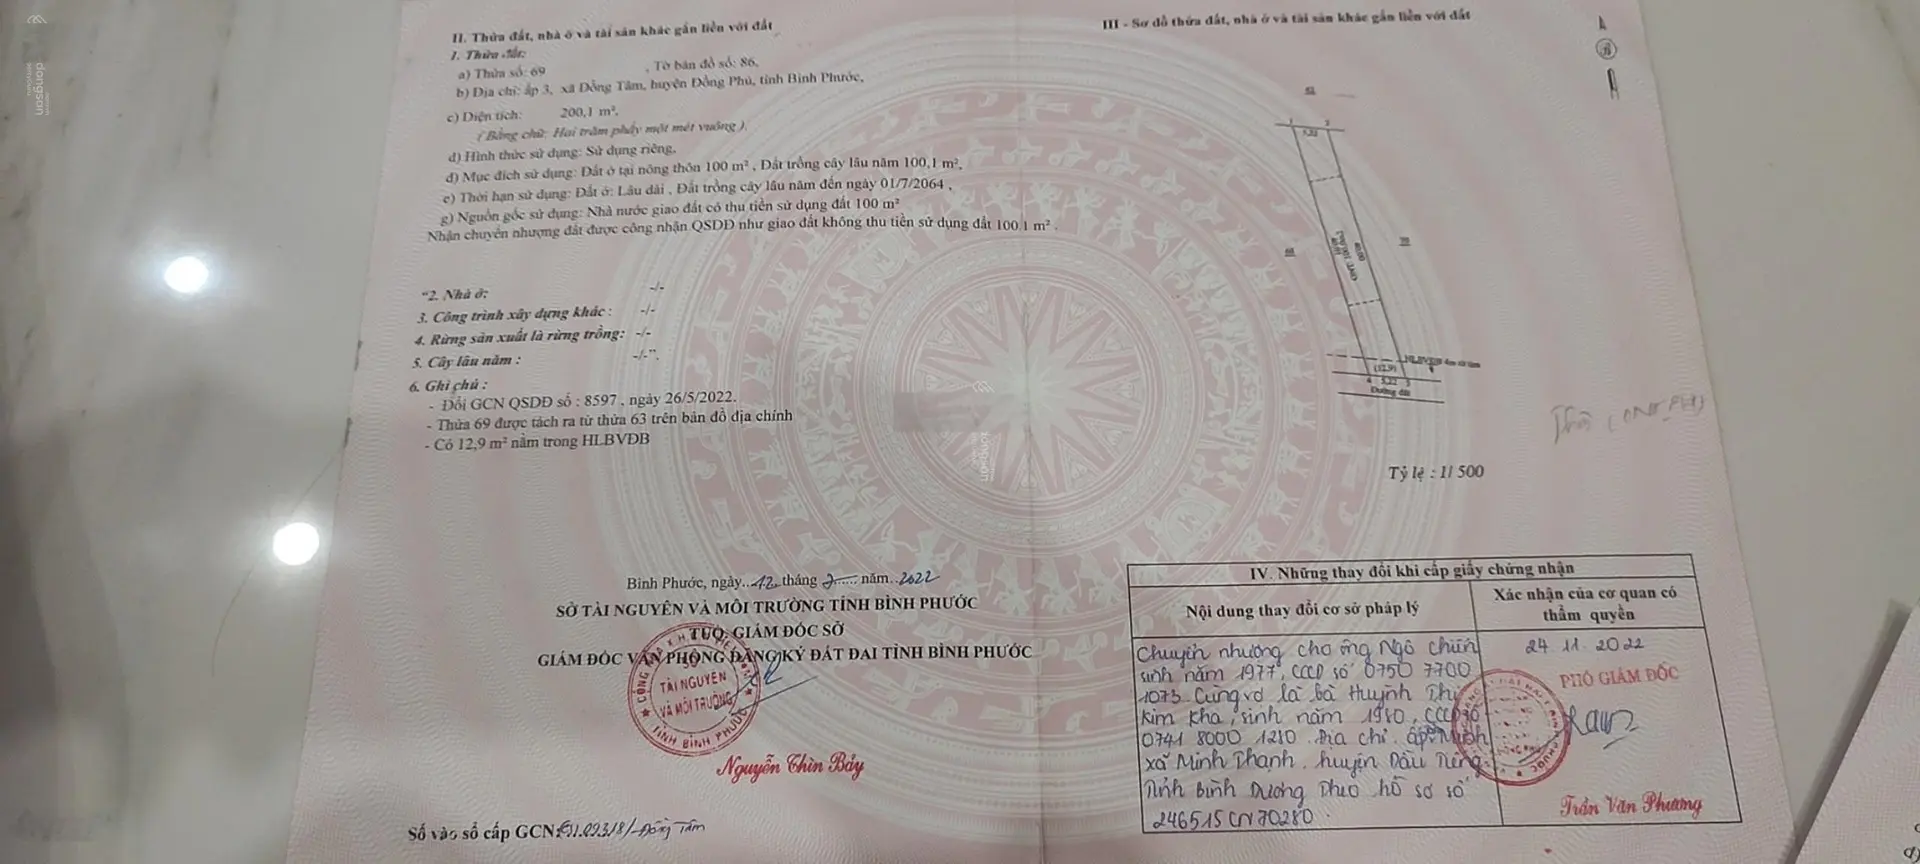 II. Thửa đất, nhà ở và tài sản khác gắn liền với đất
1. Thửa đất:
a) Thửa số: 69 , Tờ bản đồ số: 86,
b) Địa chỉ: ấp 3, xã Đồng Tâm, huyện Đồng Phú, tỉnh Bình Phước,
c) Diện tích: 200,1 m²,
( Bằng chữ: Hai trăm phẩy một mét vuông ),
d) Hình thức sử dụng: Sử dụng riêng,
đ) Mục đích sử dụng: Đất ở tại nông thôn 100 m² , Đất trồng cây lâu năm 100,1 m²,
e) Thời hạn sử dụng: Đất ở: Lâu dài , Đất trồng cây lâu năm đến ngày 01/7/2064 ,
g) Nguồn gốc sử dụng: Nhà nước giao đất có thu tiền sử dụng đất 100 m²
Nhận chuyển nhượng đất được công nhận QSDĐ như giao đất không thu tiền sử dụng đất 100,1 m² .
"2. Nhà ở: -/-
3. Công trình xây dựng khác : -/-
4. Rừng sản xuất là rừng trồng: -/-
5. Cây lâu năm : -/-".
6. Ghi chú :
- Đổi GCN QSDĐ số : 8597 , ngày 26/5/2022.
- Thửa 69 được tách ra từ thửa 63 trên bản đồ địa chính
- Có 12,9 m² nằm trong HLBVĐB
Bình Phước, ngày..12..tháng 7..... năm..2022
SỞ TÀI NGUYÊN VÀ MÔI TRƯỜNG TỈNH BÌNH PHƯỚC
TUQ. GIÁM ĐỐC SỞ
GIÁM ĐỐC VĂN PHÒNG ĐĂNG KÝ ĐẤT ĐAI TỈNH BÌNH PHƯỚC
SỞ
TÀI NGUYÊN
VÀ MÔI TRƯỜNG
TỈNH BÌNH PHƯỚC
Nguyễn Thìn Bảy
Số vào sổ cấp GCN: 09318/-Đồng Tâm
III - Sơ đồ thửa đất, nhà ở và tài sản khác gắn liền với đất
B
1 2
5,22
68
70
40,00
HLBVĐB 4m từ tim
(12,9)
4 5,22 3
Đường đất
Tỷ lệ : 1/ 500
IV. Những thay đổi khi cấp giấy chứng nhận
Nội dung thay đổi cơ sở pháp lý
Xác nhận của cơ quan có thẩm quyền
Chuyển nhượng cho ông Ngô Chiến
sinh năm 1977, CCCD số 0750 7700
1073. Cùng vợ là bà Huỳnh Thị
Kim Kha, sinh năm 1980, CCCD số
0741 8000 1280. Địa chỉ: ấp
xã Minh Thạnh, huyện Dầu Tiếng
Tỉnh Bình Dương Theo hồ sơ số
246515CN70280.
24 11 2022
PHÓ GIÁM ĐỐC
Trần Văn Phương
dongsan